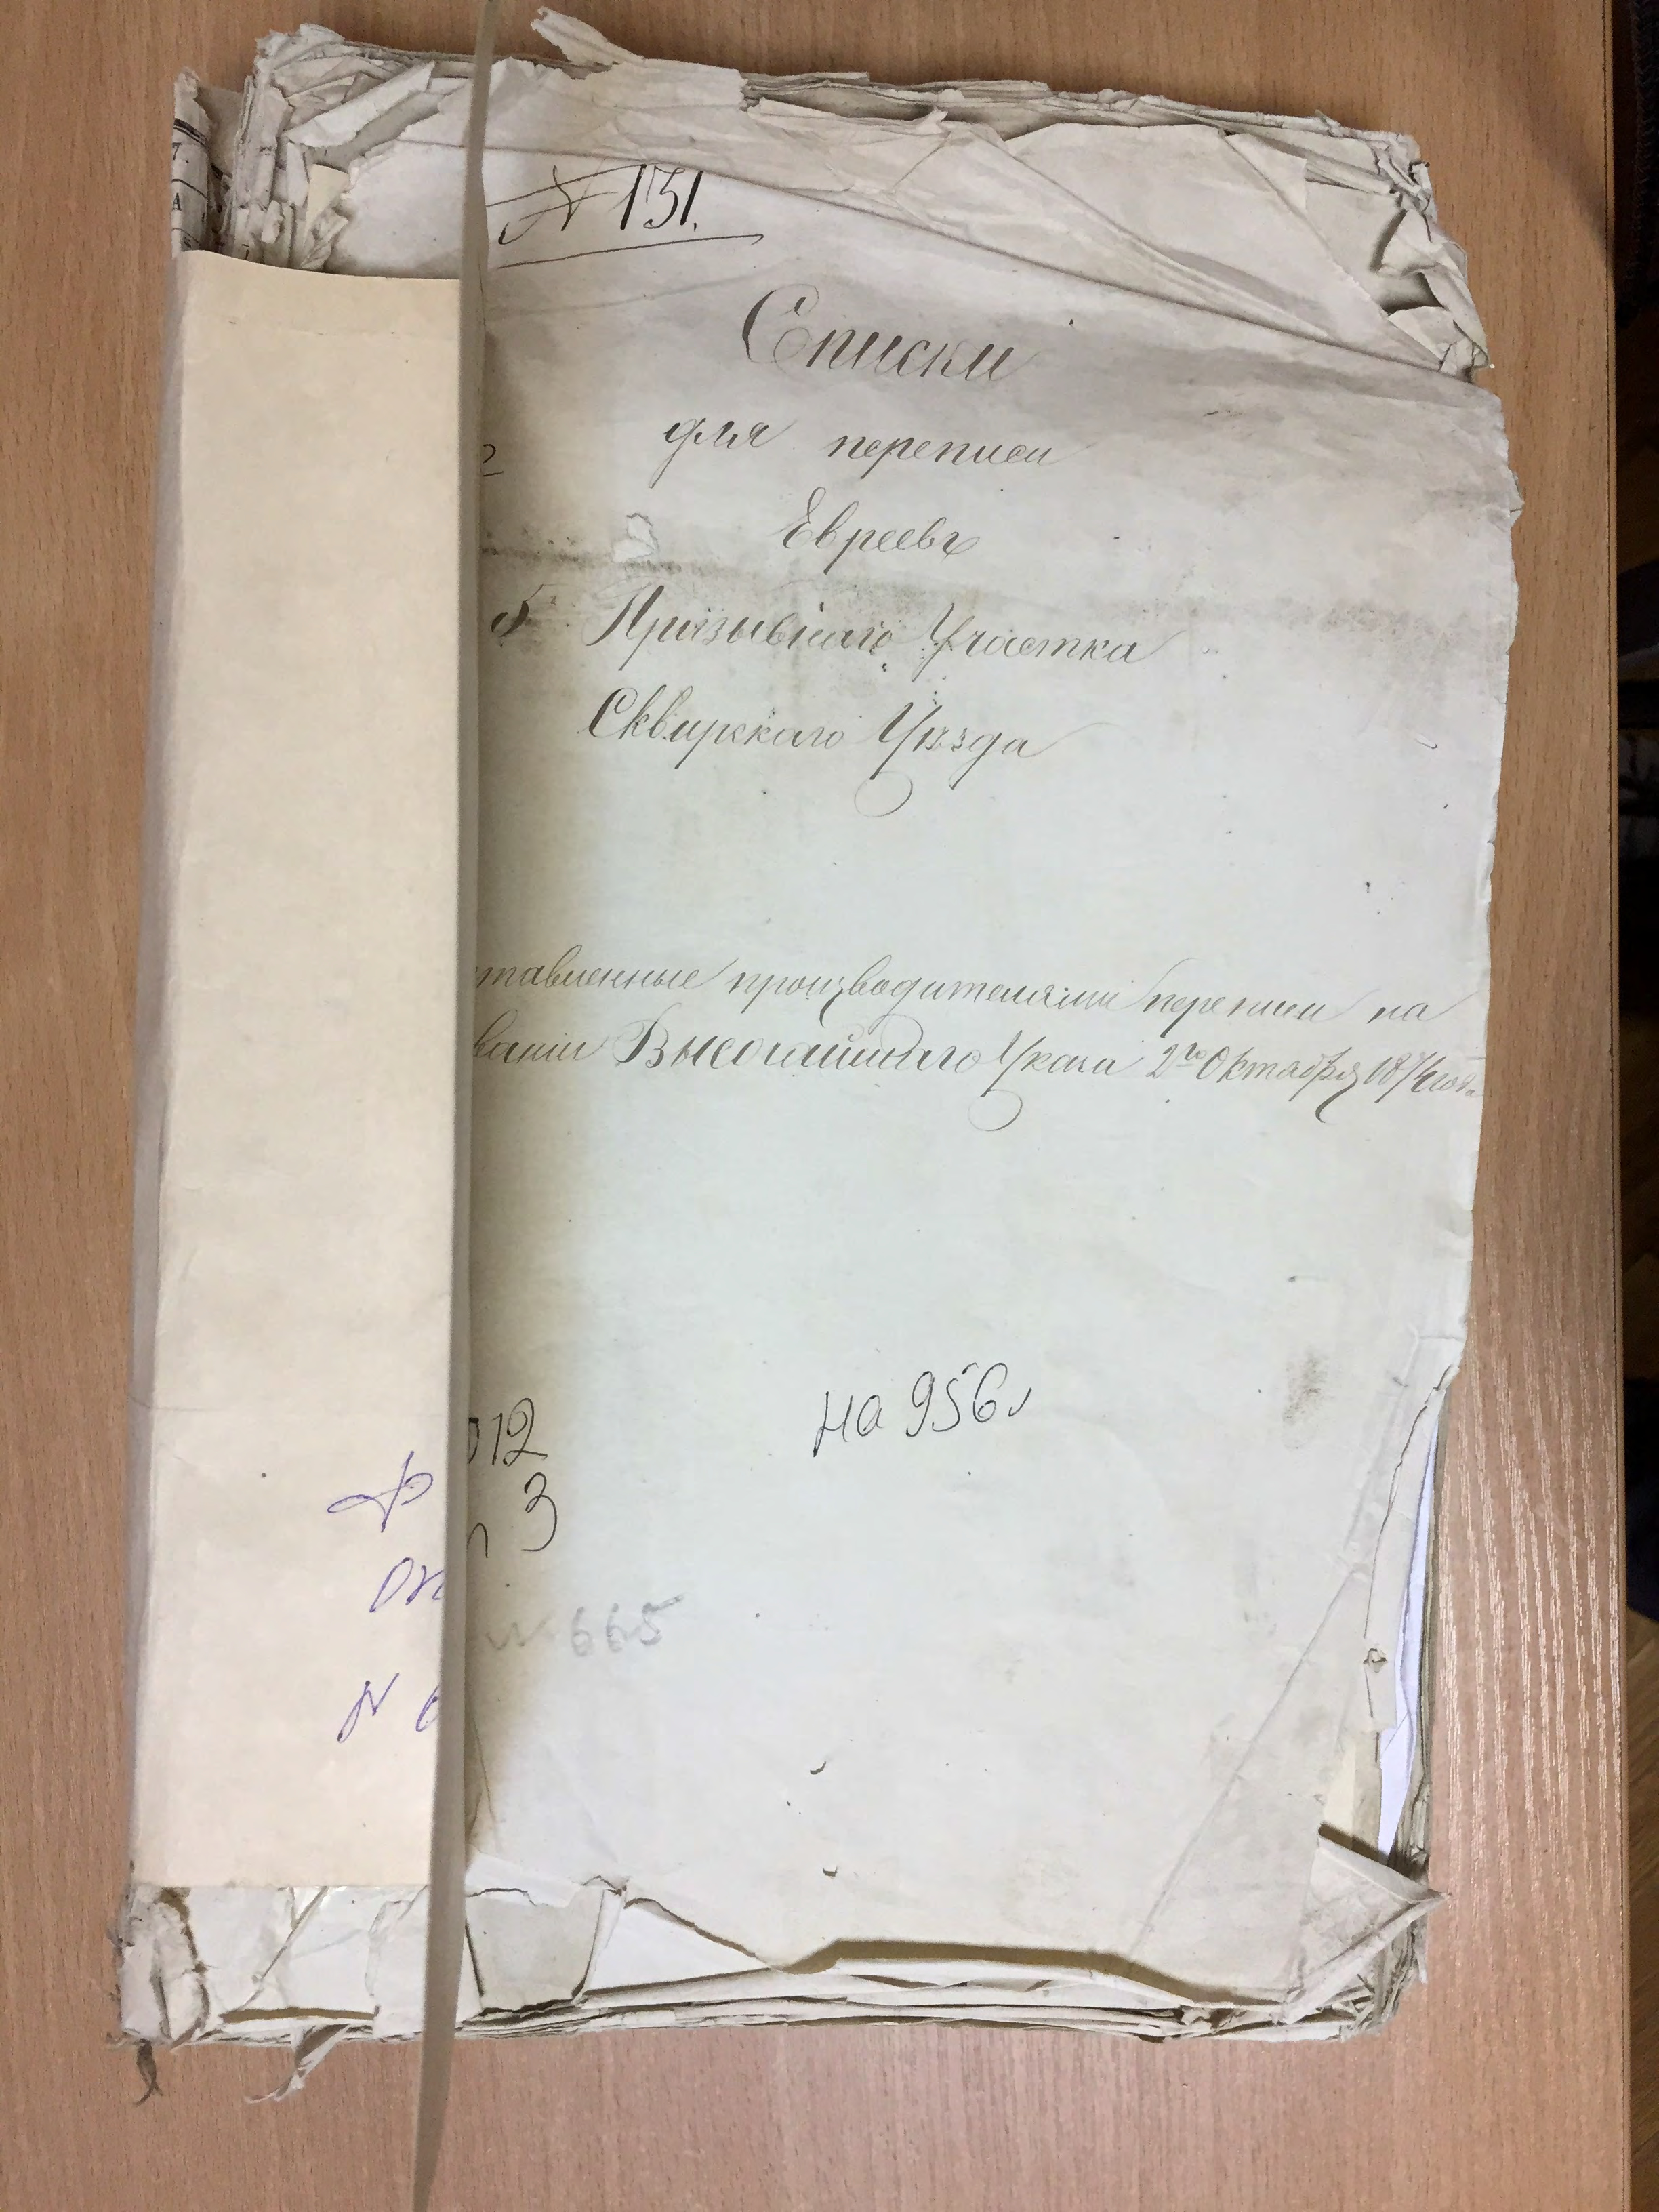 № 131.
Списки
для переписи
Евреевъ
5 Призывнаго Участка
Сквирскаго Уѣзда
ставленные производителями переписи на
ваніи Высочайшаго Указа 2го Октября года
на 956 л
12
3
665
Ф
N 6